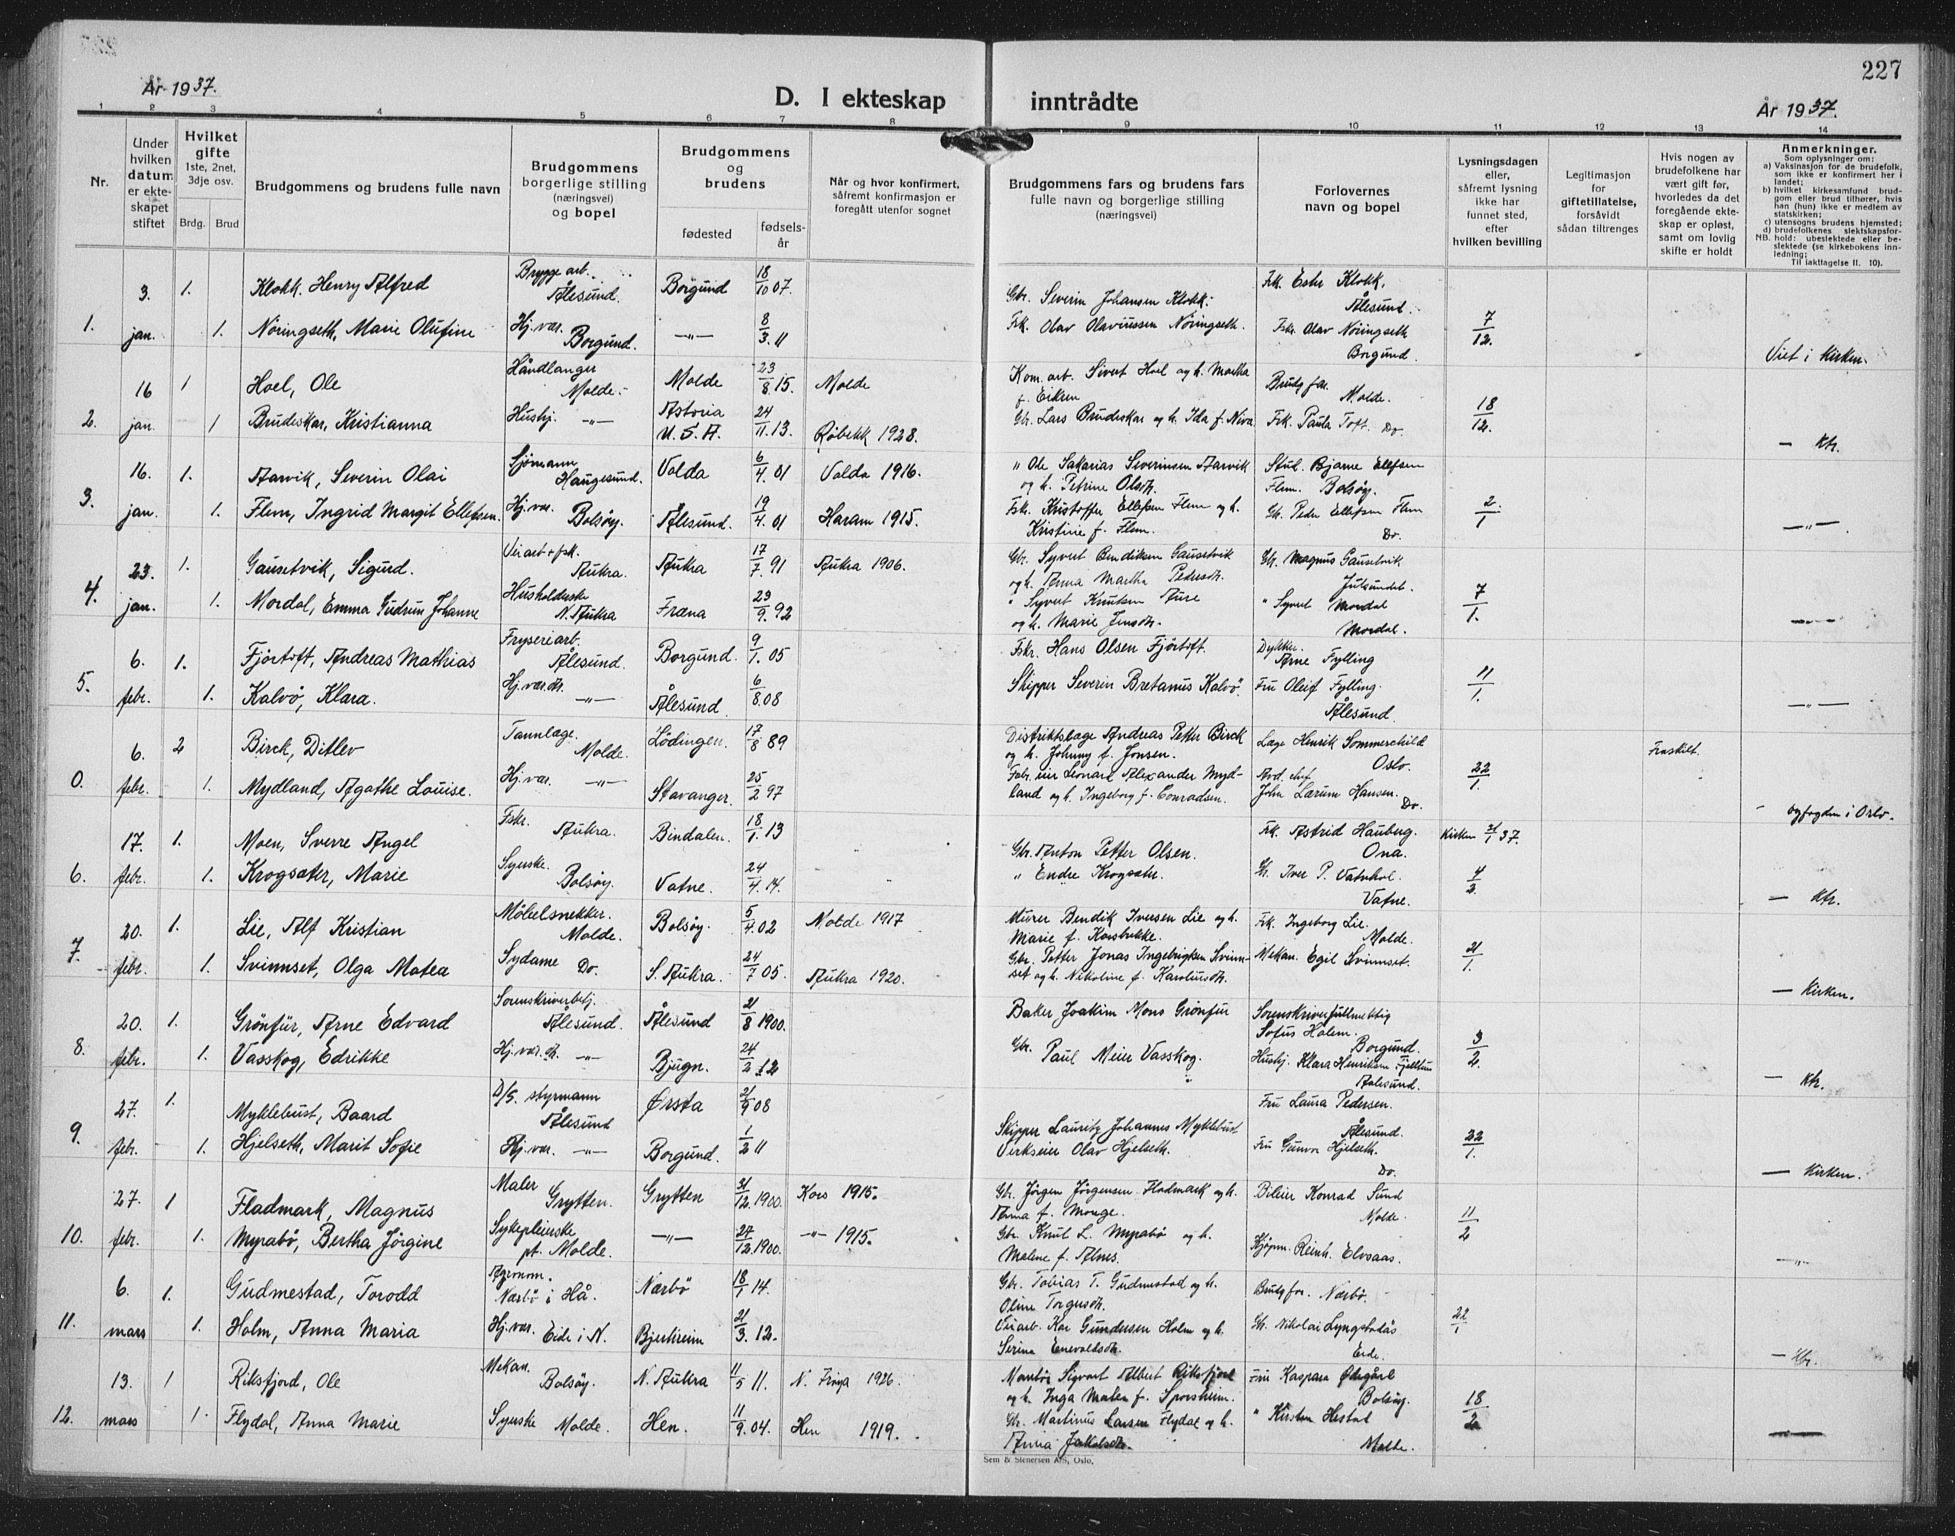 227
År 1937.
D. I ekteskap inntrådte
År 1937.
1 2 3 4 5 6 7 8 9 10 11 12 13 14
Nr.
Under hvilken datum er ekteskapet stiftet
Hvilket gifte
1ste, 2net, 3dje osv.
Brdg. Brud
Brudgommens og brudens fulle navn
Brudgommens borgerlige stilling (næringsvei) og bopel
Brudgommens og brudens
fødested fødselsår
Når og hvor konfirmert, såfremt konfirmasjon er foregått utenfor sognet
Brudgommens fars og brudens fars fulle navn og borgerlige stilling (næringsvei)
Forlovernes navn og bopel
Lysningsdagen eller, såfremt lysning ikke har funnet sted, efter hvilken bevilling
Legitimasjon for giftetillatelse, forsåvidt sådan tiltrenges
Hvis nogen av brudefolkene har vært gift før, hvorledes da det foregående ekteskap er opløst, samt om lovlig skifte er holdt
Anmerkninger.
Som oplysninger om:
a) Vaksinasjon for de brudefolk, som ikke er konfirmert her i landet;
b) hvilket kirkesamfund brudgom eller brud tilhører, hvis han (hun) ikke er medlem av statskirken;
c) utensogns brudens hjemsted;
d) brudefolkenes slektskapsforhold: ubeslektede eller beslektede (se kirkebokens innledning;
NB. Til iakttagelse II. 10).
3. 1. Klokk. Henry Alfred Brygge arb. Ålesund. Borgund 18/10 07. Gbr. Severin Johansen Klokk. Frk. Ester Klokk, Ålesund.
1. jan. 1. Nöringseth, Marie Olufine Hj. vær. Borgund. —"— 8/3 11 Fsk. Olav Olavussen Nöringseth. Fskr. Olav Nöringseth Borgund. 7/12. Viet i kirken.
16 1 Hoel, Ole Håndlanger Molde. Molde 23/8 15. Molde Kom. arb. Sivert Hoel og h. Martha f. Eiken Brudg far. Molde.
2. jan. 1 Brudeskar, Kristianna Hushj. —"— Astoria U.S.A. 24/11. 13. Röbekk 1928. Gbr. Lars Brudeskar og h. Ida f. Neva Frk. Paula Toft. Do. 18/12. — Ktr.
16. 1. Aarvik, Severin Olai Sjömann Haugesund. Volda 6/4. 01 Volda 1916. " Ole Sakarias Severinsen Aarvik og h. Petrine Olsdtr. Stud. Bjarne Ellefsen Flem. Bolsöy.
3. jan. 1. Flem, Ingrid Margit Ellefsen. Hj. vær. Bolsöy. Ålesund. 19/4. 01 Haram 1915. Fsk. Kristoffer Ellefsen Flem og h. Kristine f. Flem. Gbr. Peder Ellefsen Flem Do. 2/1 —"—
23. 1. Gausetvik, Sigurd. Veiarb + fsk. Aukra. Aukra 17/7. 91 Aukra 1906. Gbr. Syvert Bendiksen Gausetvik og h. Anna Martha Pedersdtr. Gbr. Magnus Gausetvik Julsundet.
4. jan. 1. Mordal, Emma Gudrun Johanne Husholderske N. Aukra Fræna 23/9. 92 " Syvert Knutsen Aure og h. Marie Jensdtr. " Syvert Mordal Mordal. 7/1. —"—
6. 1. Fjörtoft, Andreas Mathias Fryseriarb. Ålesund. Borgund. 9/1. 05 Fskr. Hans Olsen Fjörtoft. Dykker. Arne Fylling
5. febr. 1. Kalvö, Klara. Hj. vær. dtr. —"— Ålesund. 6/8. 08 Skipper Severin Bretanus Kalvö. Fru Oleif Fylling. Ålesund. 11/1. —"—
6. 2 Birck, Ditlev Tannlæge. Molde. Lödingen. 17/8 89 Distriktslæge Andreas Petter Birck og h. Johnny f. Jonsen. Læge Henrik Sommerschild Oslo. Fraskilt.
0. febr. 1. Mydland, Agathe Louise. Hj. vær. —"— Stavanger. 25/2 97 Fabr. eier Leonard Alexander Mydland og h. Ingeborg f. Conradsen. Avd. chef John Larum Hansen. Do. 22/1. - byfogden i Oslo.
17. 1. Moen, Sverre Angel Fskr. Aukra. Bindalen. 18/1. 13 Gbr. Anton Petter Olsen. Frk. Astrid Hauberg. Ona. Kirken 21/1 37.
6. febr. 1. Krogsæter, Marie Syerske. Bolsöy. Vatne. 24/4. 14. " Endre Krogsæter. Gb. Iver P. Vatnehol. Vatne. 4/2. — Ktr.
20. 1. Lie, Alf Kristian Möbelsnekker. Molde. Bolsöy. 5/4. 02 Molde 1917 Murer Bendik Iversen Lie og h. Marie f. Korsbrekke. Frk. Ingeborg Lie. Molde.
7. febr. 1. Svinnset, Olga Matea Sydame Do. S. Aukra. 24/7 05. Aukra 1920. Gbr. Petter Jonas Ingebrigtsen Svinnset og h. Nikoline f. Karolusdtr. Mekan. Egil Svinnset. 21/1. — Kirken.
20. 1. Grönfur, Arne Edvard Sorenskriverbetj. Ålesund. Ålesund 21/8 1900. Baker Joakim Mons Grönfur Sorenskriverfullmektig Sofus Holem. Borgund.
8. febr. 1. Vasskog, Edrikke Hj. vær. dt. —"— Bjugn. 24/2 12 Gbr. Paul Meier Vasskog. Hushj. Klara Henriksen Fjelltun Aalesund. 3/2. — Ktr.
27. 1. Myklebust, Baard D/S. styrmann Ålesund Örsta 21/9 08 Skipper Lauritz Johannes Myklebust Fru Laura Pedersen. Ålesund.
9. febr. 1. Hjelseth, Marit Sofie Hj. vær. —"— Borgund. 1/2 11 Verkseier Olav Hjelseth. Fru Gunvor Hjelseth Do. 22/1. — Kirken.
27. 1 Fladmark, Magnus Maler Grytten. Grytten 31/12. 1900. Kors 1915. Gbr. Jörgen Jörgensen Fladmark og h. Anna f. Monge. Bileier Konrad Sund Molde.
10. febr. 1. Myrabö, Bertha Jörgine Sykepleierske pt. Molde. —"— 27/12. 1900. —"— 1915. Gbr. Knut L. Myrabö og h. Malene f. Alnes. Kjöpm. Reinh. Elvsaas. 11/2 —"—
6. 1. Gudmestad, Torodd Agronom. Nærbö i Hå. Nærbö 18/1 14. Gbr. Tobias T. Gudmestad og h. Oline Torgersdtr. Brudg far. Nærbö.
11. mars 1. Holm, Anna Maria Hj. vær. Eide i N. Bjerkreim 21/3. 12. Veiarb. Kar Gundersen Holm og h. Serina Enevoldsdtr. Gbr. Nikolai Lyngstadås Eide. 22/1 — Ktr.
13. 1 Riksfjord, Ole Mekan. Bolsöy. N. Aukra 11/5 11. N. Fröya 1926. Sigvart Albert Riksfjord og h. Inga Malen f. Sporsheim. Fru Kaspara Ödegård Bolsöy.
12. mars 1. Flydal, Anna Marie Syerske Molde. Hen. 11/9. 04. Hen 1919. Gbr. Martinus Larsen Flydal og h. Anna Jakobsdtr. " Kirsten Hestad Molde. 18/2 —"—
Sem & Stenersen A/S, Oslo.